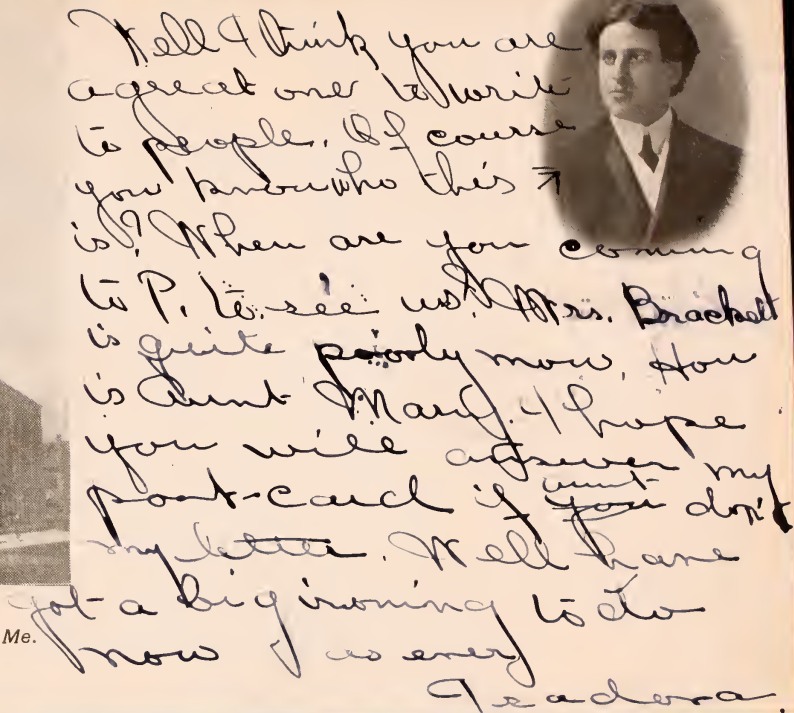 Well I think you are
a great one to write
to people. Of course
you know who this
is? When are you coming
to P. to see us? Mrs. Brackett
is quite poorly now. How
is Aunt Mary. I hope
you will answer my
post-card if you aunt don't
my letter. Well have
got a big ironing to do
now as ever
Teadora.
Me.